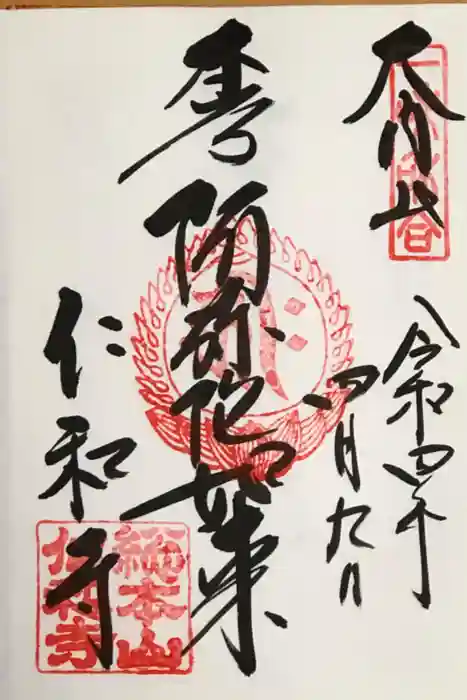 大内山
令和四年
四月九日
阿弥陀如来
仁和寺
総本山
仁和寺